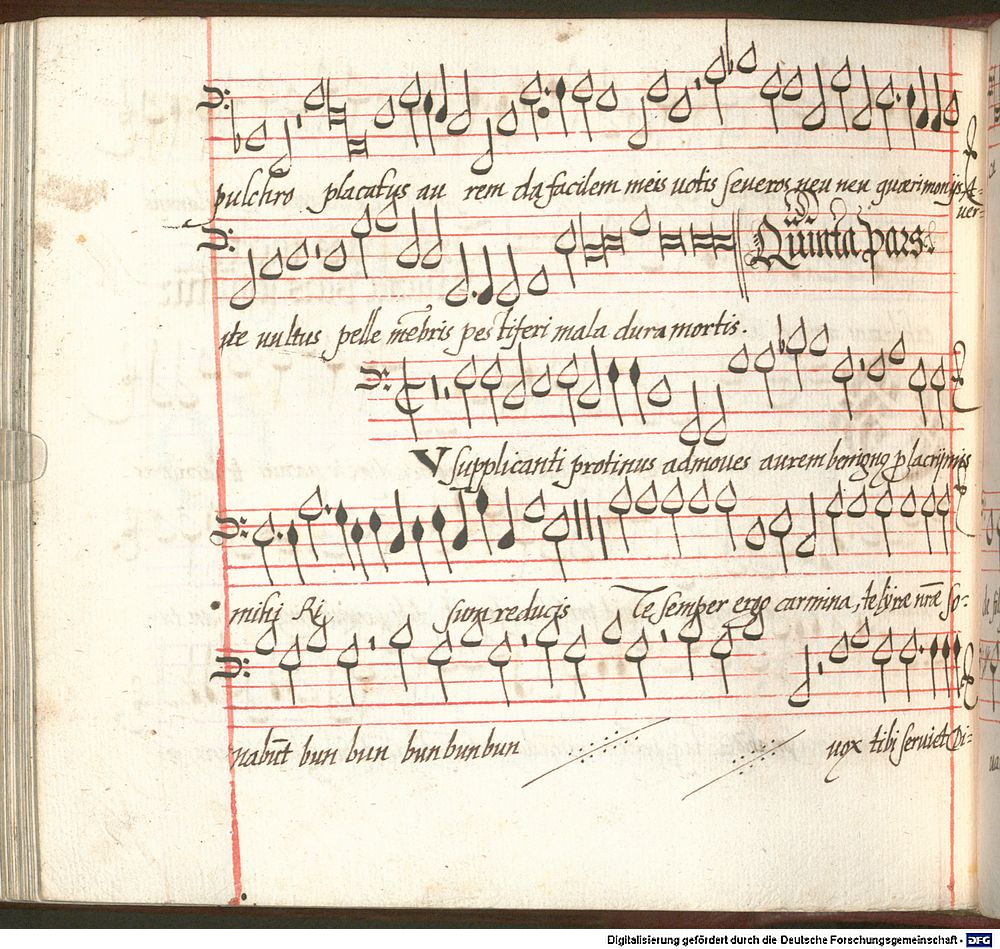 pulchro placatus au rem da facilem meis votis severos neu neu quærimonijs A-
ver-
te vultus pelle mēbris pestiferi mala dura mortis.
Quinta pars
V supplicanti protinus admoves aurem benignus placrijmis
mihi Ri sum reducis Te semper ergo carmina, te lyræ nr̄æ so-
nabūt bun bun bun bun bun vox tibi serviet Di-
Digitalisierung gefördert durch die Deutsche Forschungsgemeinschaft - DFG